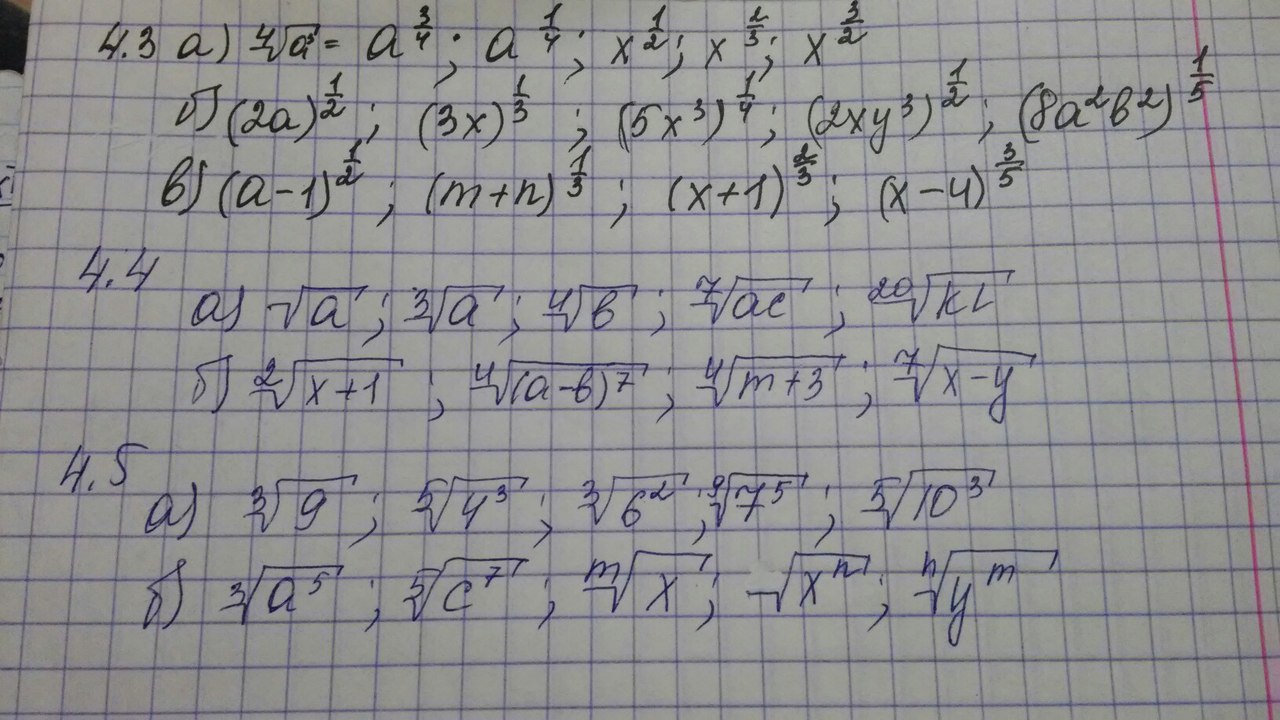 4.3 а) ⁴√a³ = a^(3/4); a^(1/4); x^(1/2); x^(2/3); x^(3/2)
б) (2a)^(1/2); (3x)^(1/3); (5x³)^(1/4); (2xy³)^(1/2); (8a²b²)^(1/5)
в) (a-1)^(1/2); (m+n)^(1/3); (x+1)^(2/3); (x-4)^(3/5)
4.4
а) √a; ³√a; ⁴√b; ⁷√ac; ²⁰√kl
б) ²√x+1; ⁴√(a-b)⁷; ⁴√m+3; ⁷√x-y
4.5
а) ³√9; ⁵√4³; ³√6²; ⁹√7⁵; ⁵√10³
б) ³√a⁵; ⁵√c⁷; ᵐ√x; √xⁿ; ⁿ√yᵐ